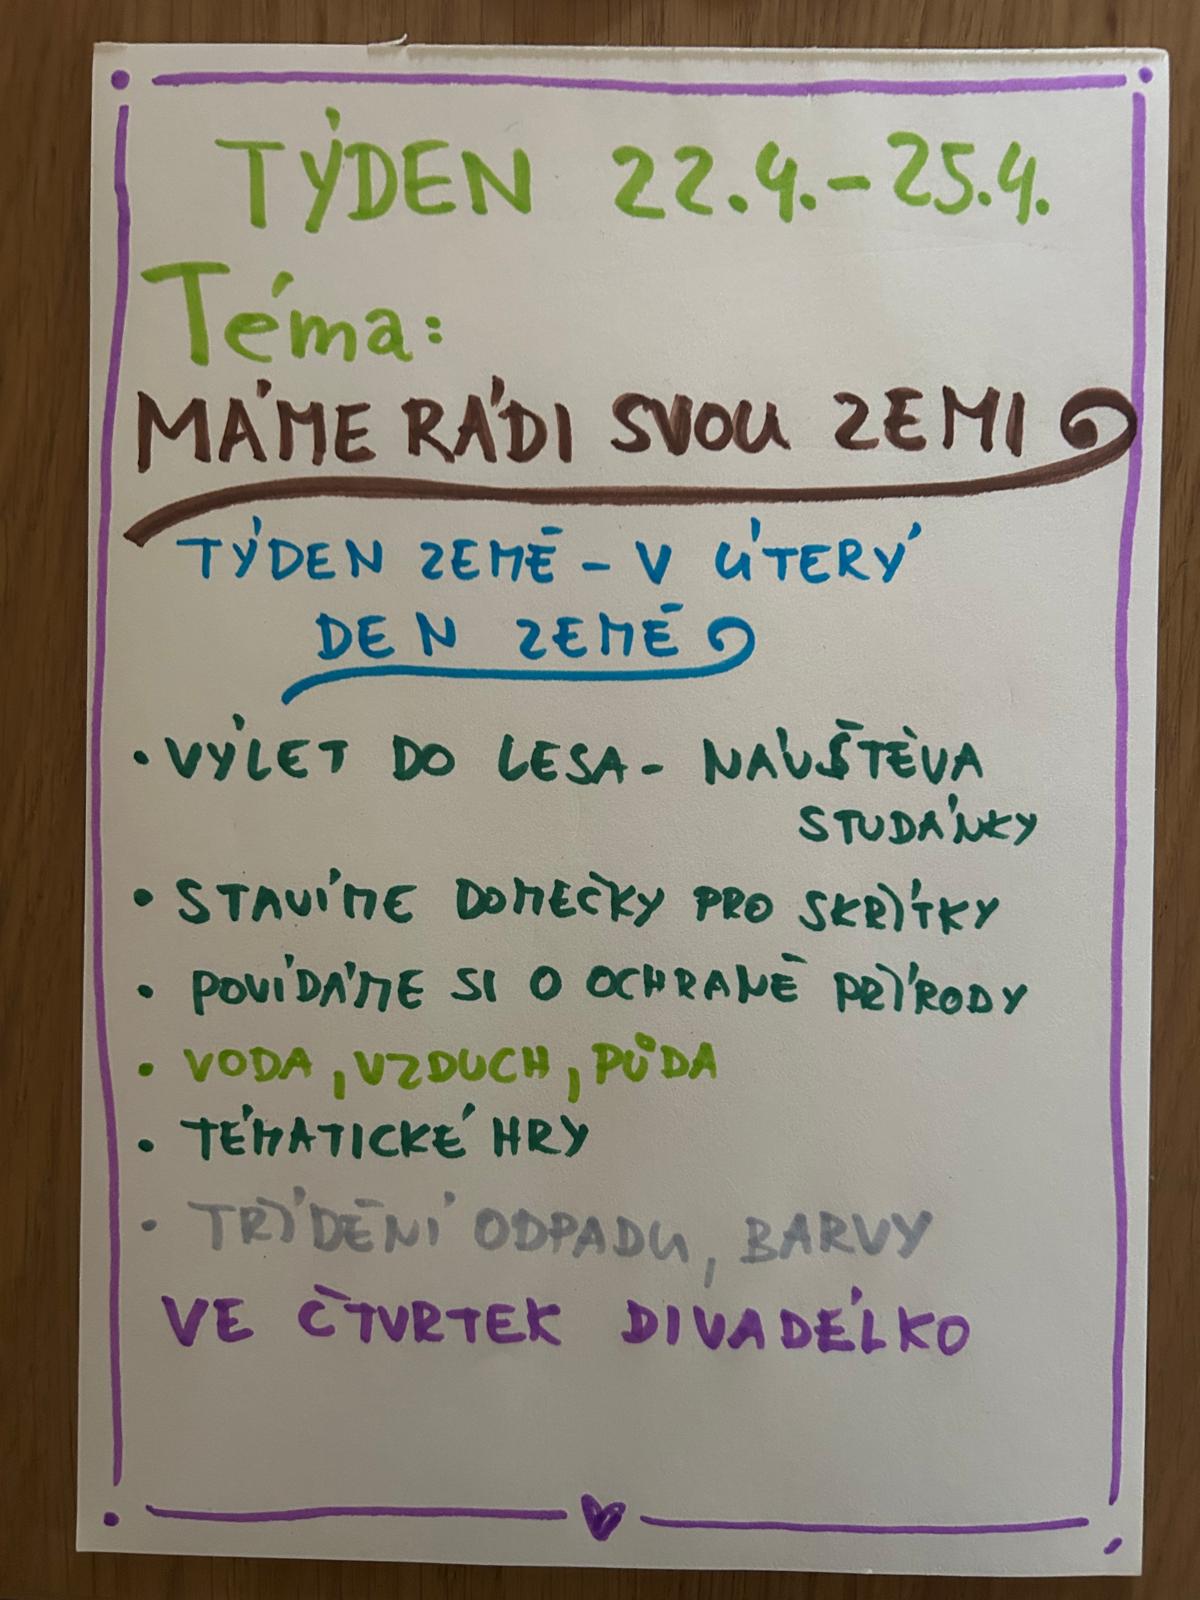 TÝDEN 22.4.-25.4.
Téma:
MÁME RÁDI SVOU ZEMI
TÝDEN ZEMĚ - V ÚTERÝ
DEN ZEMĚ
• VÝLET DO LESA - NÁVŠTĚVA
STUDÁNKY
• STAVÍME DOMEČKY PRO SKŘÍTKY
• POVÍDÁME SI O OCHRANĚ PŘÍRODY
• VODA, VZDUCH, PŮDA
• TÉMATICKÉ HRY
• TŘÍDĚNÍ ODPADU, BARVY
VE ČTVRTEK DIVADÉLKO